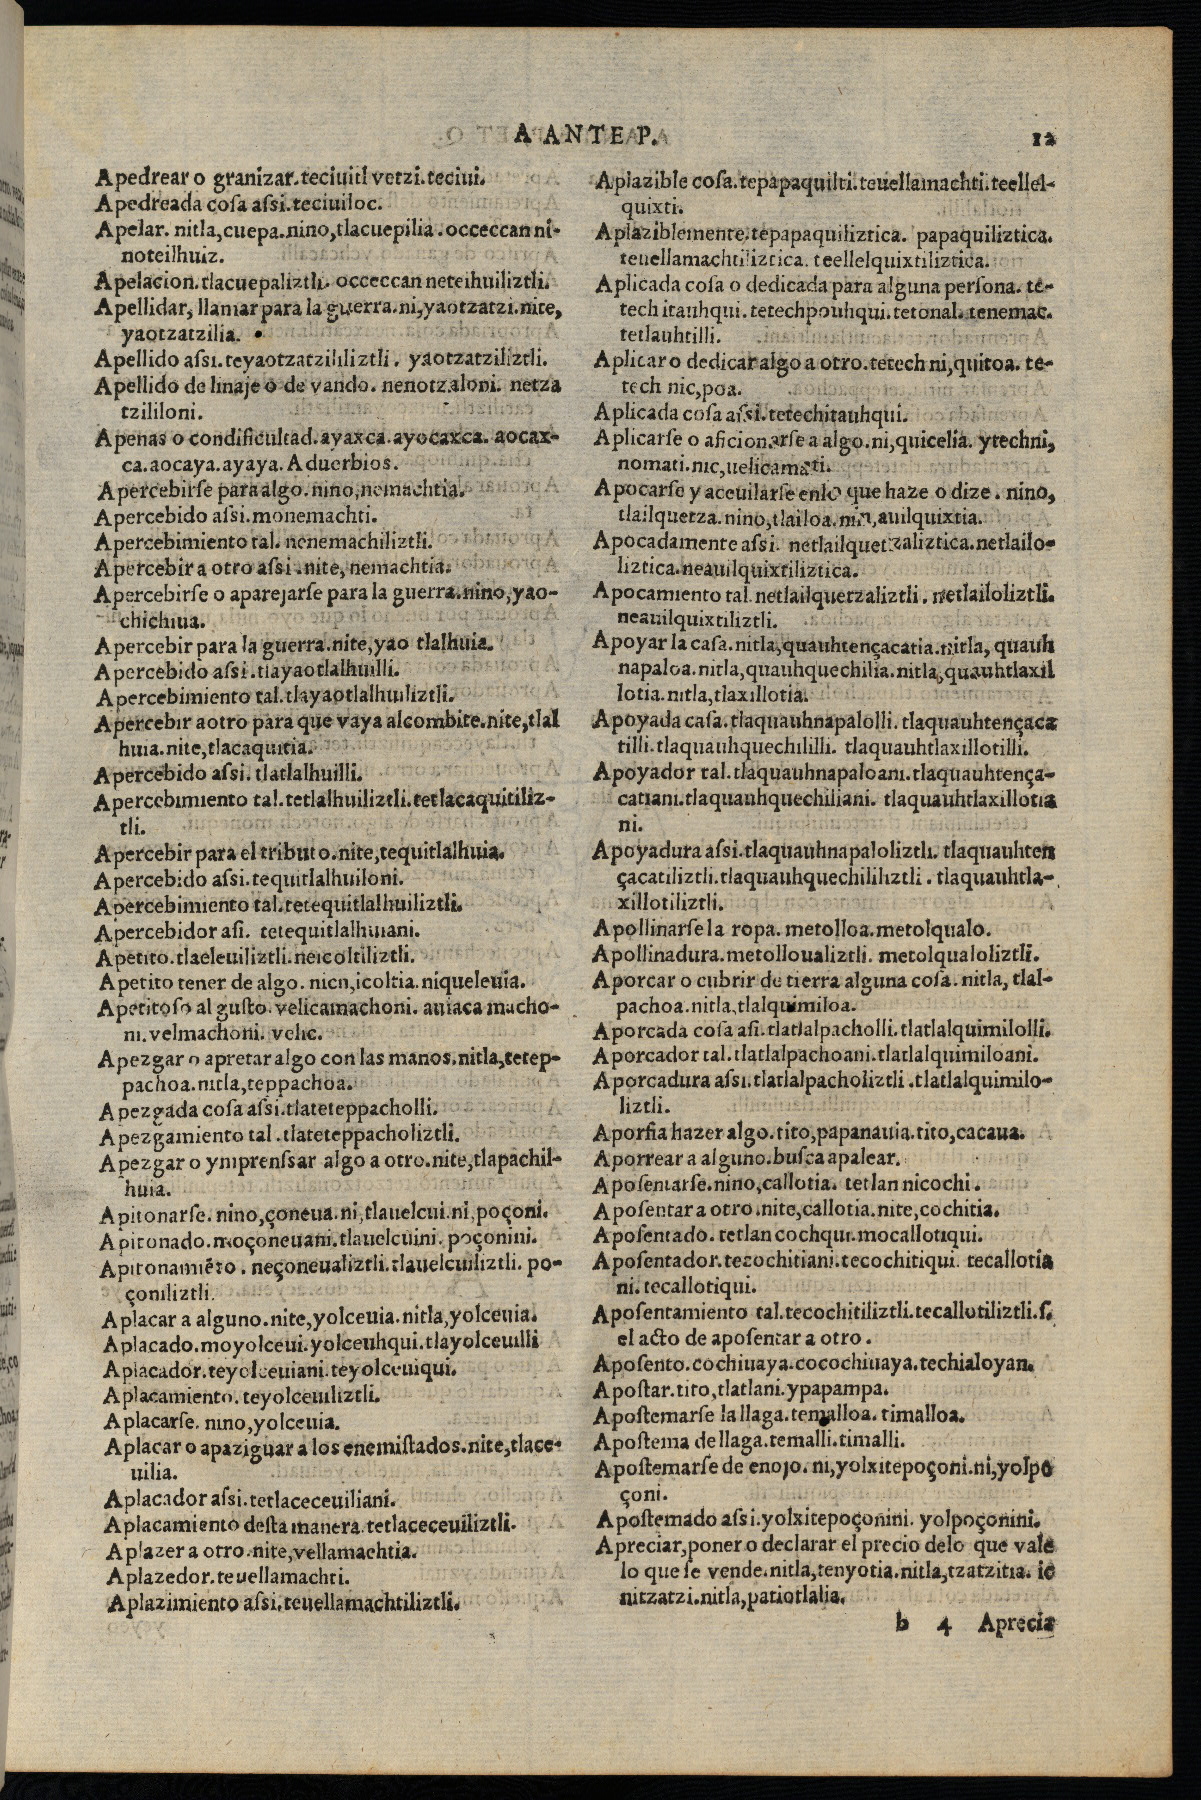 A ANTE P.
12
Apedrear o granizar.teciuitl vetzi.teciui.
Apedreada cosa assi.teciuiloc.
Apelar. nitla,cuepa.nino,tlacuepilia.occeccan ni-
noteilhuiz.
Apelacion.tlacuepaliztli. occeccan neteihuiliztli.
Apellidar, llamar para la guerra.ni,yaotzatzi.nite,
yaotzatzilia.
Apellido assi.teyaotzatzililiztli. yaotzatziliztli.
Apellido de linaje o de vando. nenotzaloni. netza
tzililoni.
Apenas o con dificultad.ayaxca.ayocaxca. aocax-
ca.aocaya.ayaya. Aduerbios.
Apercebirse para algo.nino,nemachtia.
Apercebido assi.monemachti.
Apercebimiento tal. nenemachiliztli.
Apercebir a otro assi.nite,nemachtia.
Apercebirse o aparejarse para la guerra.nino,yao-
chichiua.
Apercebir para la guerra.nite,yao tlalhuia.
Apercebido assi.tlayaotlalhuilli.
Apercebimiento tal.tlayaotlalhuiliztli.
Apercebir aotro para que vaya alcombite.nite,tlal
huia.nite,tlacaquitia.
Apercebido assi.tlatlalhuilli.
Apercebimiento tal.tetlalhuiliztli.tetlacaquitiliz-
tli.
Apercebir para el tributo.nite,tequitlalhuia.
Apercebido assi.tequitlalhuiloni.
Apercebimiento tal.tetequitlalhuiliztli.
Apercebidor asi. tetequitlalhuiani.
Apetito.tlaeleuiliztli.neicoltiliztli.
Apetito tener de algo. nicn,icoltia.niqueleuia.
Apetitoso al gusto.velicamachoni. auiaca macho-
ni.velmachoni. velic.
Apezgar o apretar algo con las manos.nitla,tetep-
pachoa.nitla,teppachoa.
Apezgada cosa assi.tlateteppacholli.
Apezgamiento tal.tlateteppacholiztli.
Apezgar o ymprenssar algo a otro.nite,tlapachil-
huia.
Apitonarse.nino,çoneua.ni,tlauelcui.ni,poçoni.
Apitonado.moçoneuani.tlauelcuini.poçonini.
Apitonamiẽto.neçoneualiztli.tlauelcuiliztli. po-
çoniliztli.
Aplacar a alguno.nite,yolceuia.nitla,yolceuia.
Aplacado.moyolceui.yolceuhqui.tlayolceuilli
Aplacador.teyolceuiani.teyolceuiqui.
Aplacamiento.teyolceuiliztli.
Aplacarse. nino,yolceuia.
Aplacar o apaziguar a los enemistados.nite,tlace-
uilia.
Aplacador assi.tetlaceceuiliani.
Aplacamiento desta manera.tetlaceceuiliztli.
Aplazer a otro.nite,vellamachtia.
Aplazedor.teuellamachti.
Aplazimiento assi.teuellamachtiliztli.
Aplazible cosa.tepapaquilti.teuellamachti.teellel-
quixti.
Aplaziblemente.tepapaquiliztica. papaquiliztica.
teuellamachtiliztica. teellelquixtiliztica.
Aplicada cosa o dedicada para alguna persona. te-
tech itauhqui.tetechpouhqui.tetonal.tenemac.
tetlauhtilli.
Aplicar o dedicar algo a otro.tetech ni,quitoa. te-
tech nic,poa.
Aplicada cosa assi.tetechitauhqui.
Aplicarse o aficionarse a algo.ni,quicelia. ytechni,
nomati.nic,uelicamati.
Apocarse y aceuilarse enlo que haze o dize. nino,
tlailquetza.nino,tlailoa.nin,auilquixtia.
Apocadamente assi. netlailquetzaliztica.netlailo-
liztica.neauilquixtiliztica.
Apocamiento tal.netlailquetzaliztli. netlailoliztli.
neauilquixtiliztli.
Apoyar la casa.nitla,quauhtençacatia.nitla, quauh
napaloa.nitla,quauhquechilia.nitla,quauhtlaxil
lotia.nitla,tlaxillotia.
Apoyada casa.tlaquauhnapalolli.tlaquauhtençaca
tilli.tlaquauhquechililli. tlaquauhtlaxillotilli.
Apoyador tal.tlaquauhnapaloani.tlaquauhtença-
catiani.tlaquauhquechiliani. tlaquauhtlaxillotia
ni.
Apoyadura assi.tlaquauhnapaloliztli. tlaquauhten
çacatiliztli.tlaquauhquechililiztli. tlaquauhtla-
xillotiliztli.
Apollinarse la ropa. metolloa.metolqualo.
Apollinadura.metolloualiztli. metolqualoliztli.
Aporcar o cubrir de tierra alguna cosa. nitla, tlal-
pachoa.nitla,tlalquimiloa.
Aporcada cosa asi.tlatlalpacholli.tlatlalquimilolli.
Aporcador tal.tlatlalpachoani.tlatlalquimiloani.
Aporcadura assi.tlatlalpacholiztli.tlatlalquimilo-
liztli.
Aporfia hazer algo.tito,papanauia.tito,cacaua.
Aporrear a alguno.busca apalear.
Aposentarse.nino,callotia. tetlan nicochi.
Aposentar a otro.nite,callotia.nite,cochitia.
Aposentado.tetlan cochqui.mocallotiqui.
Aposentador.tecochitiani.tecochitiqui. tecallotia
ni.tecallotiqui.
Aposentamiento tal.tecochitiliztli.tecallotiliztli.s.
el acto de aposentar a otro.
Aposento.cochiuaya.cocochiuaya.techialoyan.
Apostar.tito,tlatlani.ypapampa.
Apostemarse la llaga.temalloa.timalloa.
Apostema de llaga.temalli.timalli.
Apostemarse de enojo.ni,yolxitepoçoni.ni,yolpo
çoni.
Apostemado assi.yolxitepoçonini. yolpoçonini.
Apreciar,poner o declarar el precio delo que vale
lo que se vende.nitla,tenyotia.nitla,tzatzitia. ic
nitzatzi.nitla,patiotlalia.
b 4 Aprecia